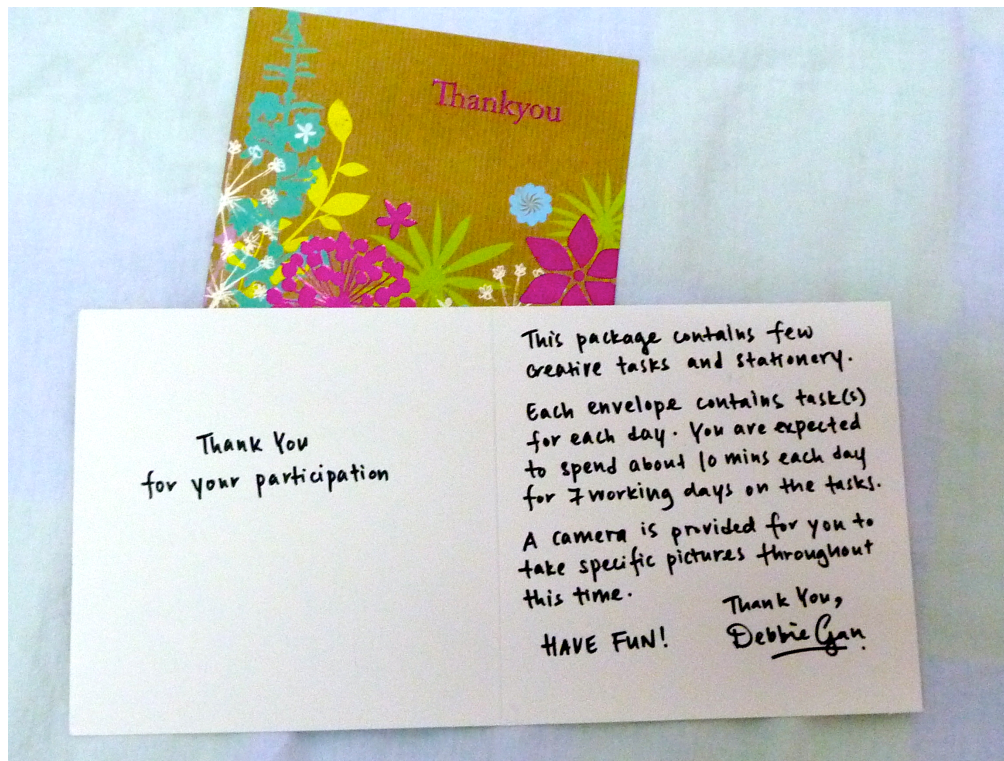 Thankyou
Thank You
for your participation
This package contains few
creative tasks and stationery.
Each envelope contains task(s)
for each day. You are expected
to spend about 10 mins each day
for 7 working days on the tasks.
A camera is provided for you to
take specific pictures throughout
this time.
Thank You,
HAVE FUN!
Debbie Gan